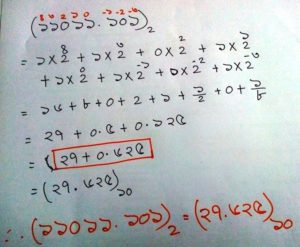 ৪ ৩ ২ ১ ০ -১ -২ -৩
(১১০১১.১০১)₂
= ১×২^৪ + ১×২^৩ + ০×২^২ + ১×২^১
+ ১×২^০ + ১×২^-১ + ০×২^-২ + ১×২^-৩
= ১৬ + ৮ + ০ + ২ + ১ + ১/২ + ০ + ১/৮
= ২৭ + ০.৫ + ০.১২৫
= (২৭ + ০.৬২৫
= (২৭.৬২৫)১০
∴ (১১০১১.১০১)২ = (২৭.৬২৫)১০